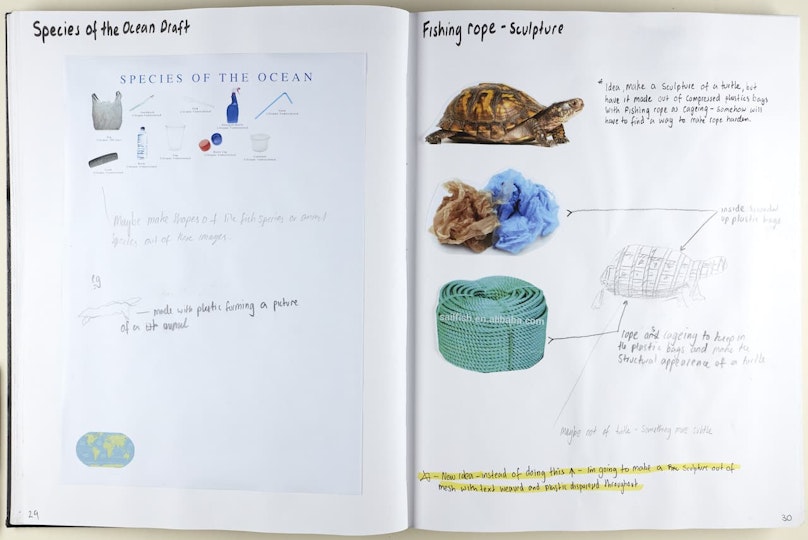 Species of the Ocean Draft
SPECIES OF THE OCEAN
Maybe make shapes of like fish species or animal
species out of these images
eg
— made with plastic forming a picture
of a animal
29
Fishing rope - sculpture
* Idea, make a sculpture of a turtle, but
have it made out of compressed plastics bags
with fishing rope as cageing - somehow will
have to find a way to make rope harden.
inside
up plastic bags
sailfish.en.alibaba.com
rope and cageing to keep in
the plastic bags and make the
structural appearance of a turtle
Maybe not of turtle - something more subtle
- New idea - instead of doing this ↑ - I'm going to make a sculpture out of
mesh with text weaved and plastic dispersed throughout.
30